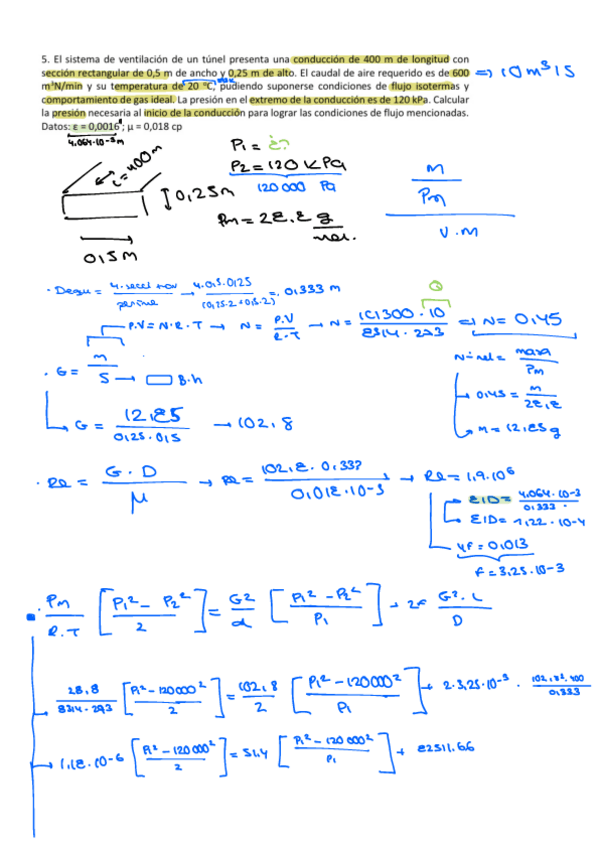 5. El sistema de ventilación de un túnel presenta una conducción de 400 m de longitud con
sección rectangular de 0,5 m de ancho y 0,25 m de alto. El caudal de aire requerido es de 600 => 10 m³/s
m³N/min y su temperatura de 20 ºC, pudiendo suponerse condiciones de flujo isotermas y
comportamiento de gas ideal. La presión en el extremo de la conducción es de 120 kPa. Calcular
la presión necesaria al inicio de la conducción para lograr las condiciones de flujo mencionadas.
Datos: ε = 0,0016"; μ = 0,018 cp
4.064·10-3 m
L=400m
0,25m
0,5 m
P1 = ¿?
P2 = 120 KPa
120 000 Pa
Pm = 28,8 g/mol.
m
Pm
V·M
· Dequ = 4·secc / → 4·0,5·0,25 / (0,25·2+0,5·2) = 0,333 m
Q
P.V = N·R·T → N = P.V / R·T → N = 101300·10 / 8314·293 => N = 0,45
· G = m / S → B·h
Nº mol = masa / Pm
0,45 = m / 28,8
m = 12,85 g
G = 12,85 / 0,25·0,5 → 102,8
· Re = G·D / μ → Re = 102,8·0,333 / 0,018·10-3 → Re = 1,9·10⁶
E/D = 4.064·10-3 / 0,333
E/D = 1,22·10-4
4f = 0,013
f = 3,25·10-3
· Pm / R.T [P1² - P2² / 2] = G² / α [P1² - P2² / P1] + 2f G²·L / D
28,8 / 8314·293 [P1² - 120000² / 2] = 102,8 / 2 [P1² - 120000² / P1] + 2·3,25·10-3 · 102,8²·400 / 0,333
1,18·10-6 [P1² - 120000² / 2] = 51,4 [P1² - 120000² / P1] + 82511.66